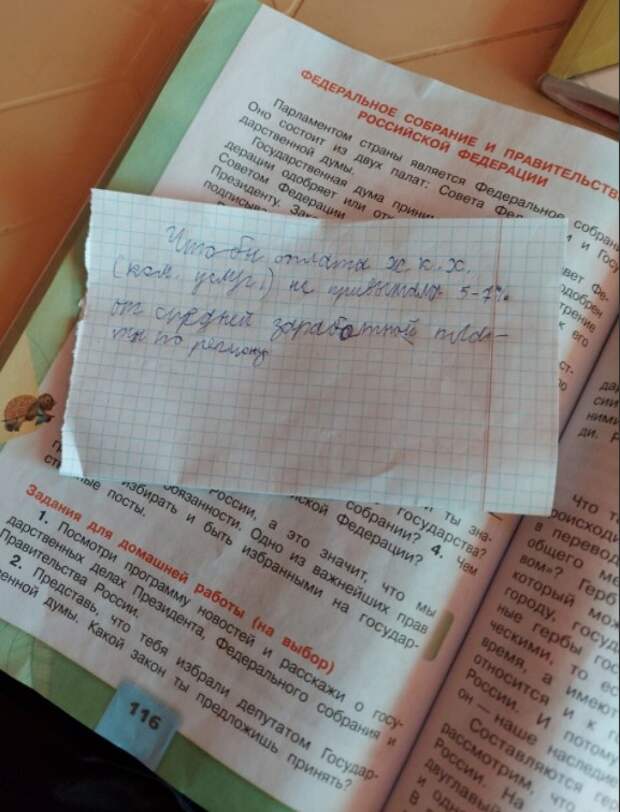 ФЕДЕРАЛЬНОЕ СОБРАНИЕ И ПРАВИТЕЛЬСТВ
РОССИЙСКОЙ ФЕДЕРАЦИИ
Парламентом страны является Федеральное собран
Оно состоит из двух палат: Совета Фед и Госу
дарственной думы.
Государственная дума приним
дерации одобряет или отк
Советом Федерации
Президенту. Зак
подписыва
вет Фе-
одобрен
трение
к его
Что бы оплата ж.к.х.
(ком. услуг.) не привышала 5-7%
от средней заработной пла-
ты по региону
России, а это значит, что мы
обязанности. Одно из важнейших прав
избирать и быть избранными на государ-
ственные посты.
собрании? 4. Чем
йской Федерации?
государства?
и ты зна-
Задания для домашней работы (на выбор)
1. Посмотри программу новостей и расскажи о госу-
дарственных делах Президента, Федерального собрания и
Правительства России.
2. Представь, что тебя избрали депутатом Государ-
венной думы. Какой закон ты предложишь принять?
116
дар
сии
ними
ди. Р
Что т
происходи
в перевод
общего ме
вом»? Герб
который мож
городу, госуд
ные гербы гос
ческими, то ес
время, а имеют
относится и к г
России. И потому
он — наше наследие
Составляются гер
рассмотрим, что
России. На
двуглавый
и одной
В од